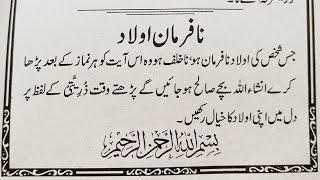 نافرمان اولاد
جس شخص کی اولاد نافرمان ہو؛ نا خلف ہو وہ اس آیت کو ہر نماز کے بعد پڑھا
کرے انشاء اللہ بچے صالح ہو جائیں گے پڑھتے وقت ذُرِّیَّتِیْ کے لفظ پر
دل میں اپنی اولاد کا خیال رکھیں۔
بِسْمِ اللّٰهِ الرَّحْمٰنِ الرَّحِيْمِ